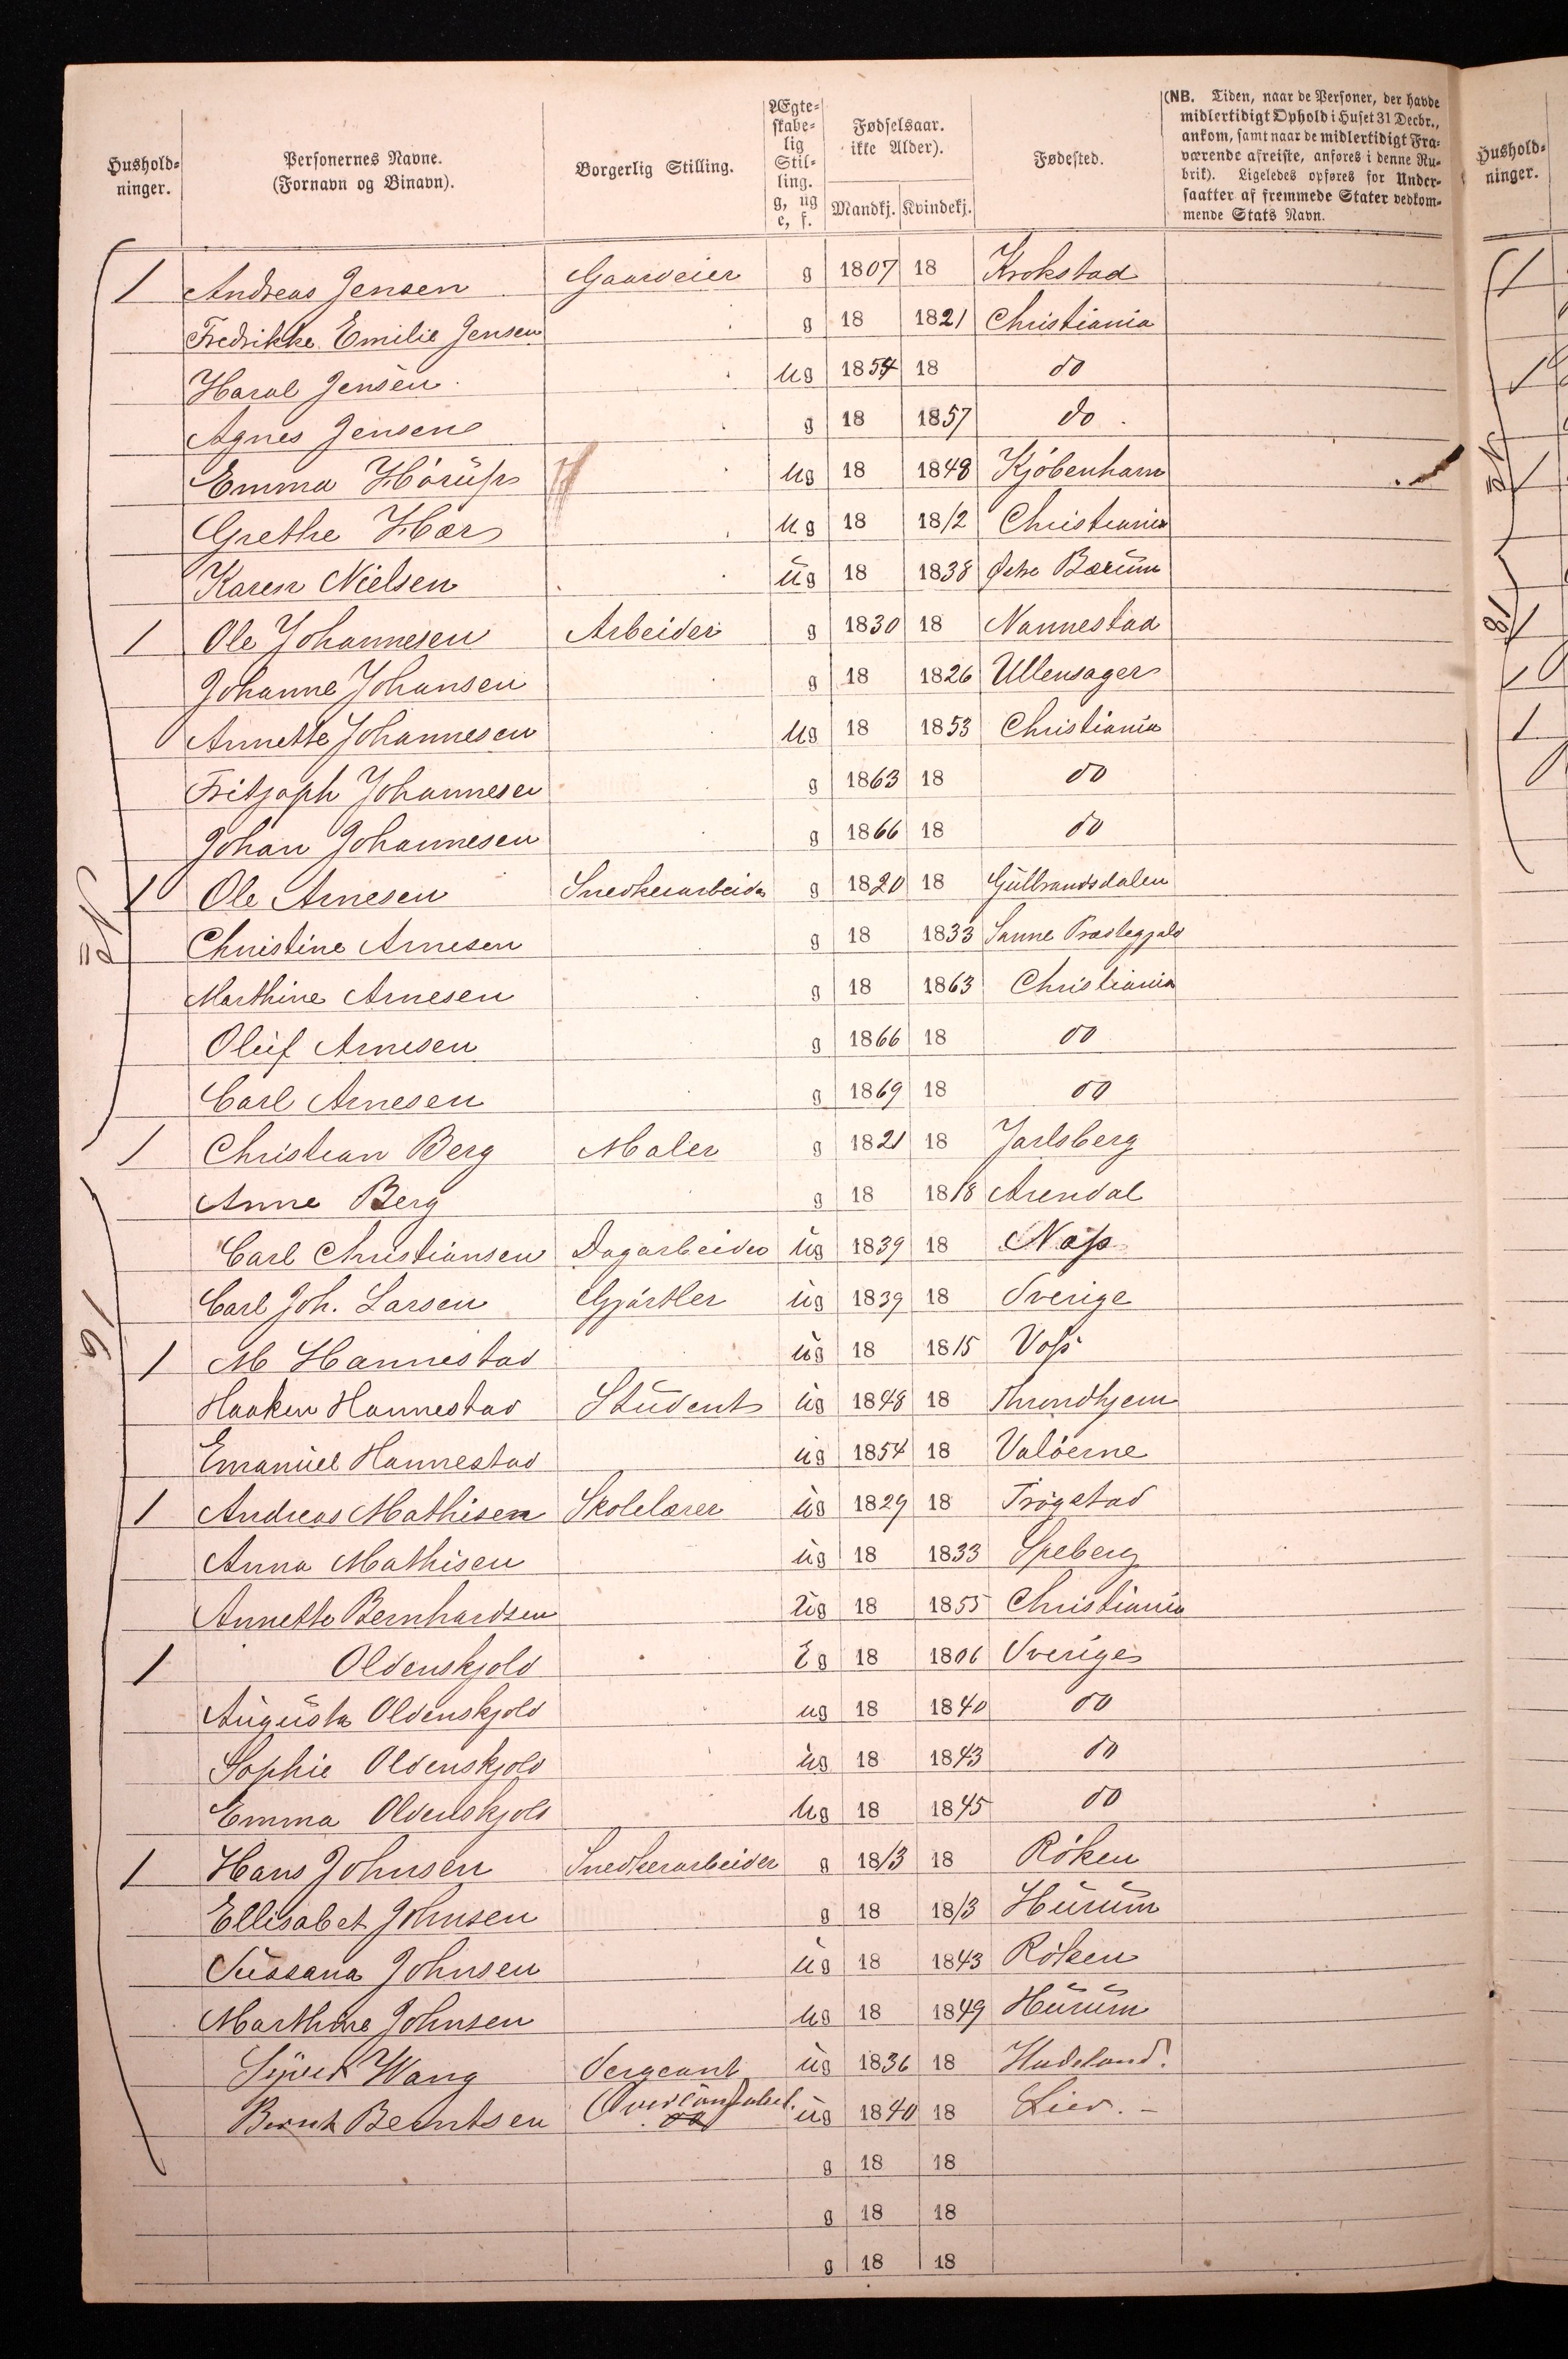 Hushold-
ninger.
Personernes Navne.
(Fornavn og Binavn).
Borgerlig Stilling.
Ægte-
skabe-
lig
Stil-
ling.
g, ug
e, f.
Fødselsaar.
ikke Alder).
Mandkj. Kvindekj.
Fødested.
(NB. Tiden, naar de Personer, der havde
midlertidigt Ophold i Huset 31 Decbr.,
ankom, samt naar de midlertidigt Fra-
værende afreiste, anføres i denne Ru-
brik). Ligeledes opføres for Under-
saatter af fremmede Stater vedkom-
mende Stats Navn.
Hushold-
ninger.
1 Andreas Jensen Gaardeier g 1807 18 Krokstad
Fredrikke Emilie Jensen g 18 1821 Christiania
Haral Jensen ug 1854 18 do
Agnes Jensen g 18 1857 do
Emma ug 18 1848 Kjöbenhavn
Grethe ug 18 1812 Christiania
Karen Nielsen ug 18 1838 Bærum
1 Ole Johannesen Arbeider g 1830 18 Nannestad
Johanne Johansen g 18 1826 Ullensager
Annette Johannesen ug 18 1853 Christiania
Fritjoph Johannesen g 1863 18 do
Johan Johannesen g 1866 18 do
1 Ole Arnesen Snedkerarbeider g 1820 18 Gulbrandsdalen
Christine Arnesen g 18 1833 Sanne Præstegjæld
Marthine Arnesen g 18 1863 Christiania
Oluf Arnesen g 1866 18 do
Carl Arnesen g 1869 18 do
1 Christian Berg Maler g 1821 18 Jarlsberg
Anne Berg g 18 1818 Arendal
Carl Christiansen Dagarbeider ug 1839 18 Næss
Carl Joh. Larsen Gjørtler ug 1839 18 Sverige
1 M Hannestad ug 18 1815 Voss
Haaken Hannestad Student ug 1848 18 Throndhjem
Emanuel Hannestad ug 1854 18 Valöerne
1 Andreas Mathisen Skolelærer ug 1829 18 Trögstad
Anna Mathisen ug 18 1833 Speberg
Annette Bernhardsen ug 18 1855 Christiania
1 Oldenskjold Eg 18 1806 Sverige
Augusta Oldenskjold ug 18 1840 do
Sophie Oldenskjold ug 18 1843 do
Emma Oldenskjold ug 18 1845 do
1 Hans Johnsen Snedkerarbeider g 1813 18 Röken
Ellisabet Johnsen g 18 1813 Hurum
Sussana Johnsen ug 18 1843 Röken
Marthine Johnsen ug 18 1849 Hurum
Wang Sergeant ug 1836 18 Hadeland.
Bernt Berntsen Overconstabel. ug 1840 18 Lier. -
g 18 18
g 18 18
g 18 18